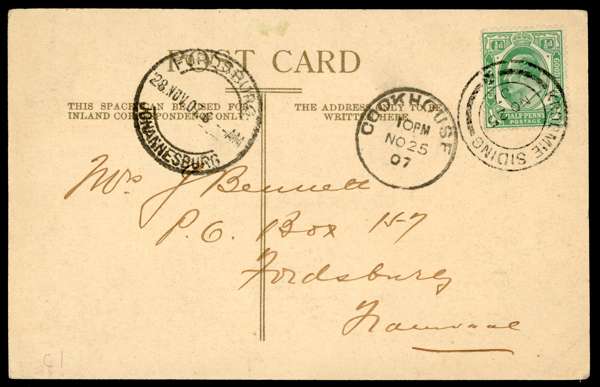 POST CARD
THIS SPACE CAN BE USED FOR
INLAND CORRESPONDENCE ONLY
THE ADDRESS ONLY TO BE
WRITTEN HERE
FORDSBURG
28 NOV 07
JOHANNESBURG
COOKHOUSE
10 PM
NO 25
07
½d
½d
HALF PENNY
POSTAGE
SIDING
Mrs J Bennett
P.O. Box 157
Fordsburg
Transvaal
C1